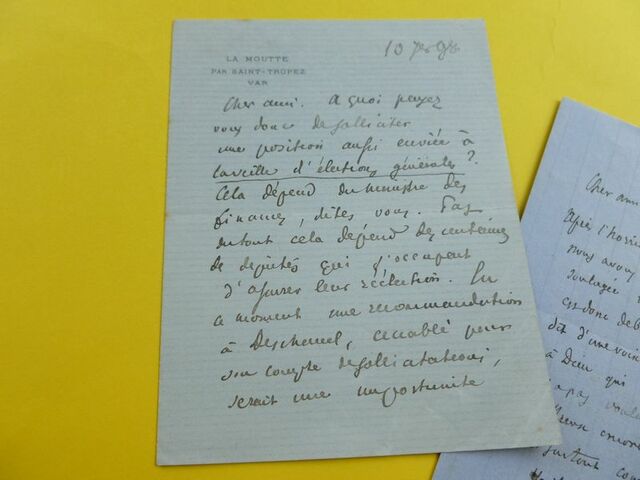 LA MOUTTE
PAR SAINT-TROPEZ
VAR
10 98
Cher ami. A quoi pensez
vous donc de solliciter
une position aussi enviée à
la veille d'élections générales ?
Cela dépend du ministre des
Finances, dites vous. Pas
du tout cela dépend des centaines
de députés qui s'occupent
d'assurer leur réélection. En
ce moment une recommandation
à Deschanel, accablé pour
son compte de sollicitations,
serait une importunité
Cher ami
Après l'horri
nous avons
soulagés
à Dieu qui
a pas voulu
encore
surtout